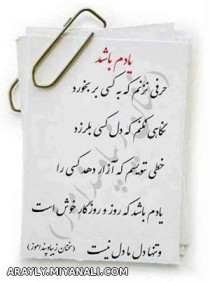 یادم باشد
حرفی نزنم که به کسی بر بخورد
نگاهی نکنم که دل کسی بلرزد
خطی ننویسم که آزار دهد کسی را
یادم باشد که روز و روزگار خوش است
وتنها دل ما دل نیست
(سخنان زیباپندآموز)
ARAYLY.MIYANALI.COM